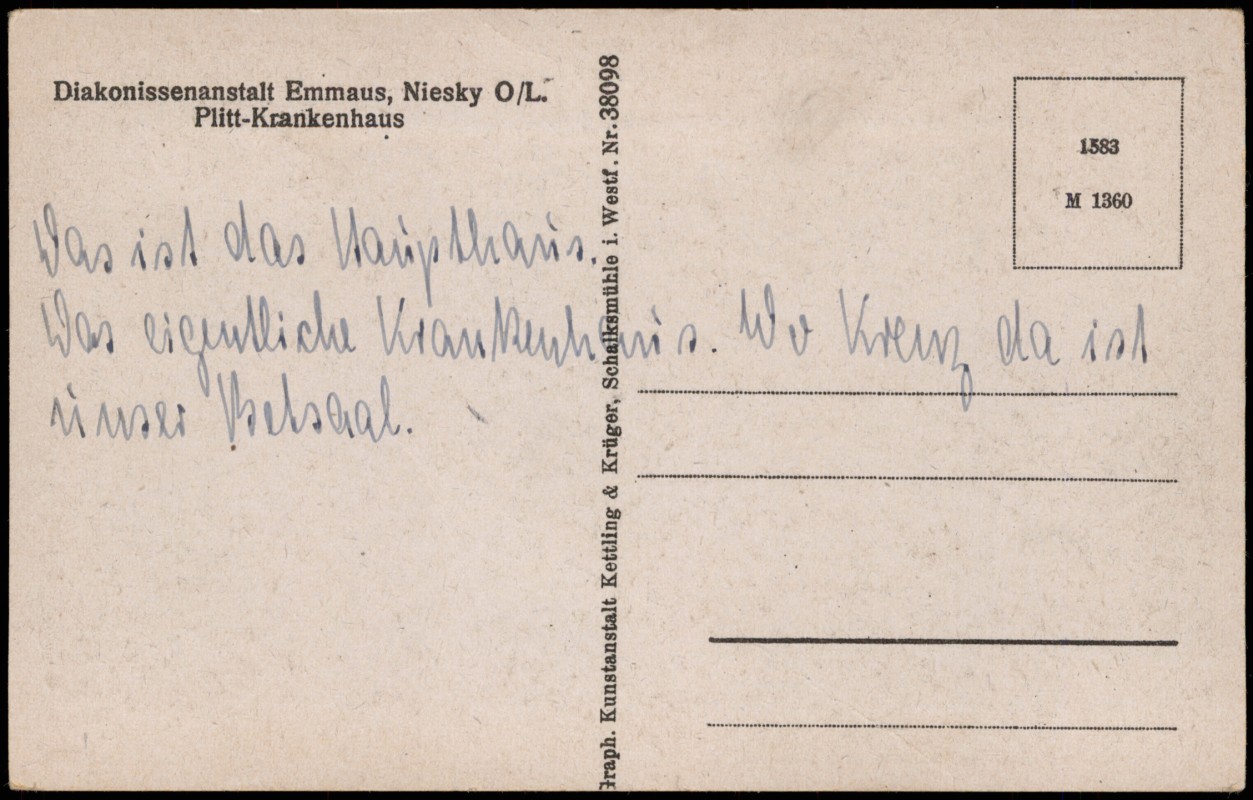 Diakonissenanstalt Emmaus, Niesky O/L.
Plitt-Krankenhaus
Das ist das Haupthaus.
Das eigentliche Krankenhaus. Wo Kreuz da ist
unser Betsaal.
Graph. Kunstanstalt Kettling & Krüger, Schalksmühle i. Westf. Nr. 38098
1583
M 1360